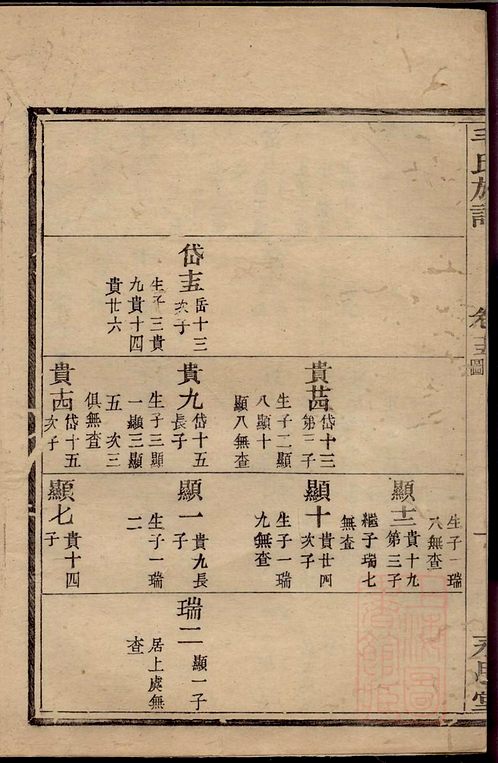 氏族譜
卷十五圖
一
岱十五
岳十三
次子
生子三貴
九貴十四
貴廿六
貴廿四
岱十三
第三子
生子二顯
八顯十
顯八無查
貴九
岱十五
長子
生子三顯
一顯三顯
五 次三
俱無查
貴十四
岱十五
次子
生子一瑞
八無查
顯十二
貴十九
第三子
繼子瑞七
無查
顯十
貴廿四
次子
生子一瑞
九無查
顯一
貴九長
子
生子一瑞
二
顯七
貴十四
子
瑞二
顯一子
居上虞無
查